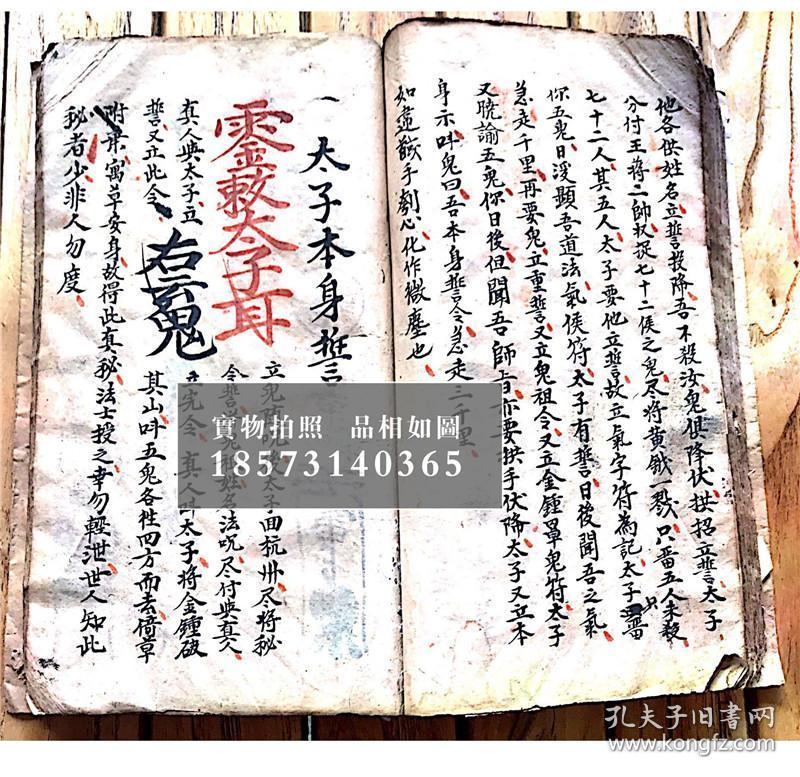 他各供姓名立誓投降吾不殺汝鬼俱降伏拱招立誓太子
分付王蔣二帥收捉七十二侯之鬼尽將黄鉞一戮只畱五人未殺
七十二人其五人太子要他立誓故立氣字符為記太子畱
你五鬼日後顕吾道法氣侯符太子有誓日後聞吾之氣
急走千里再要鬼立重誓又立鬼祖令又立金鍾罩鬼符太子
又曉諭五鬼你日後但聞吾師言亦要拱手伏降太子又立本
身示吽鬼曰吾本身誓令急走三千里
如違截手割心化作微塵也
一太子本身誓
靈敕太子耳
立鬼 太子面杭州尽將秘
令誓 法呪尽付與真人
真人與太子立
誓又立此令
太子將金鍾破
其山吽五鬼各往四方而去倚草
附木寓草安身故得此真秘法士授之幸勿輕泄世人知此
秘者少非人勿度
實物拍照 品相如圖
18573140365
孔夫子旧書网
www.kongfz.com